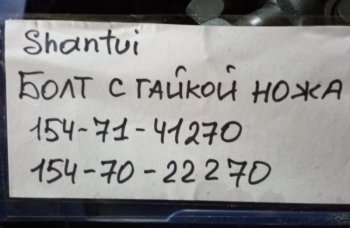 Shantui
БОЛТ С ГАЙКОЙ НОЖА
154-71-41270
154-70-22270